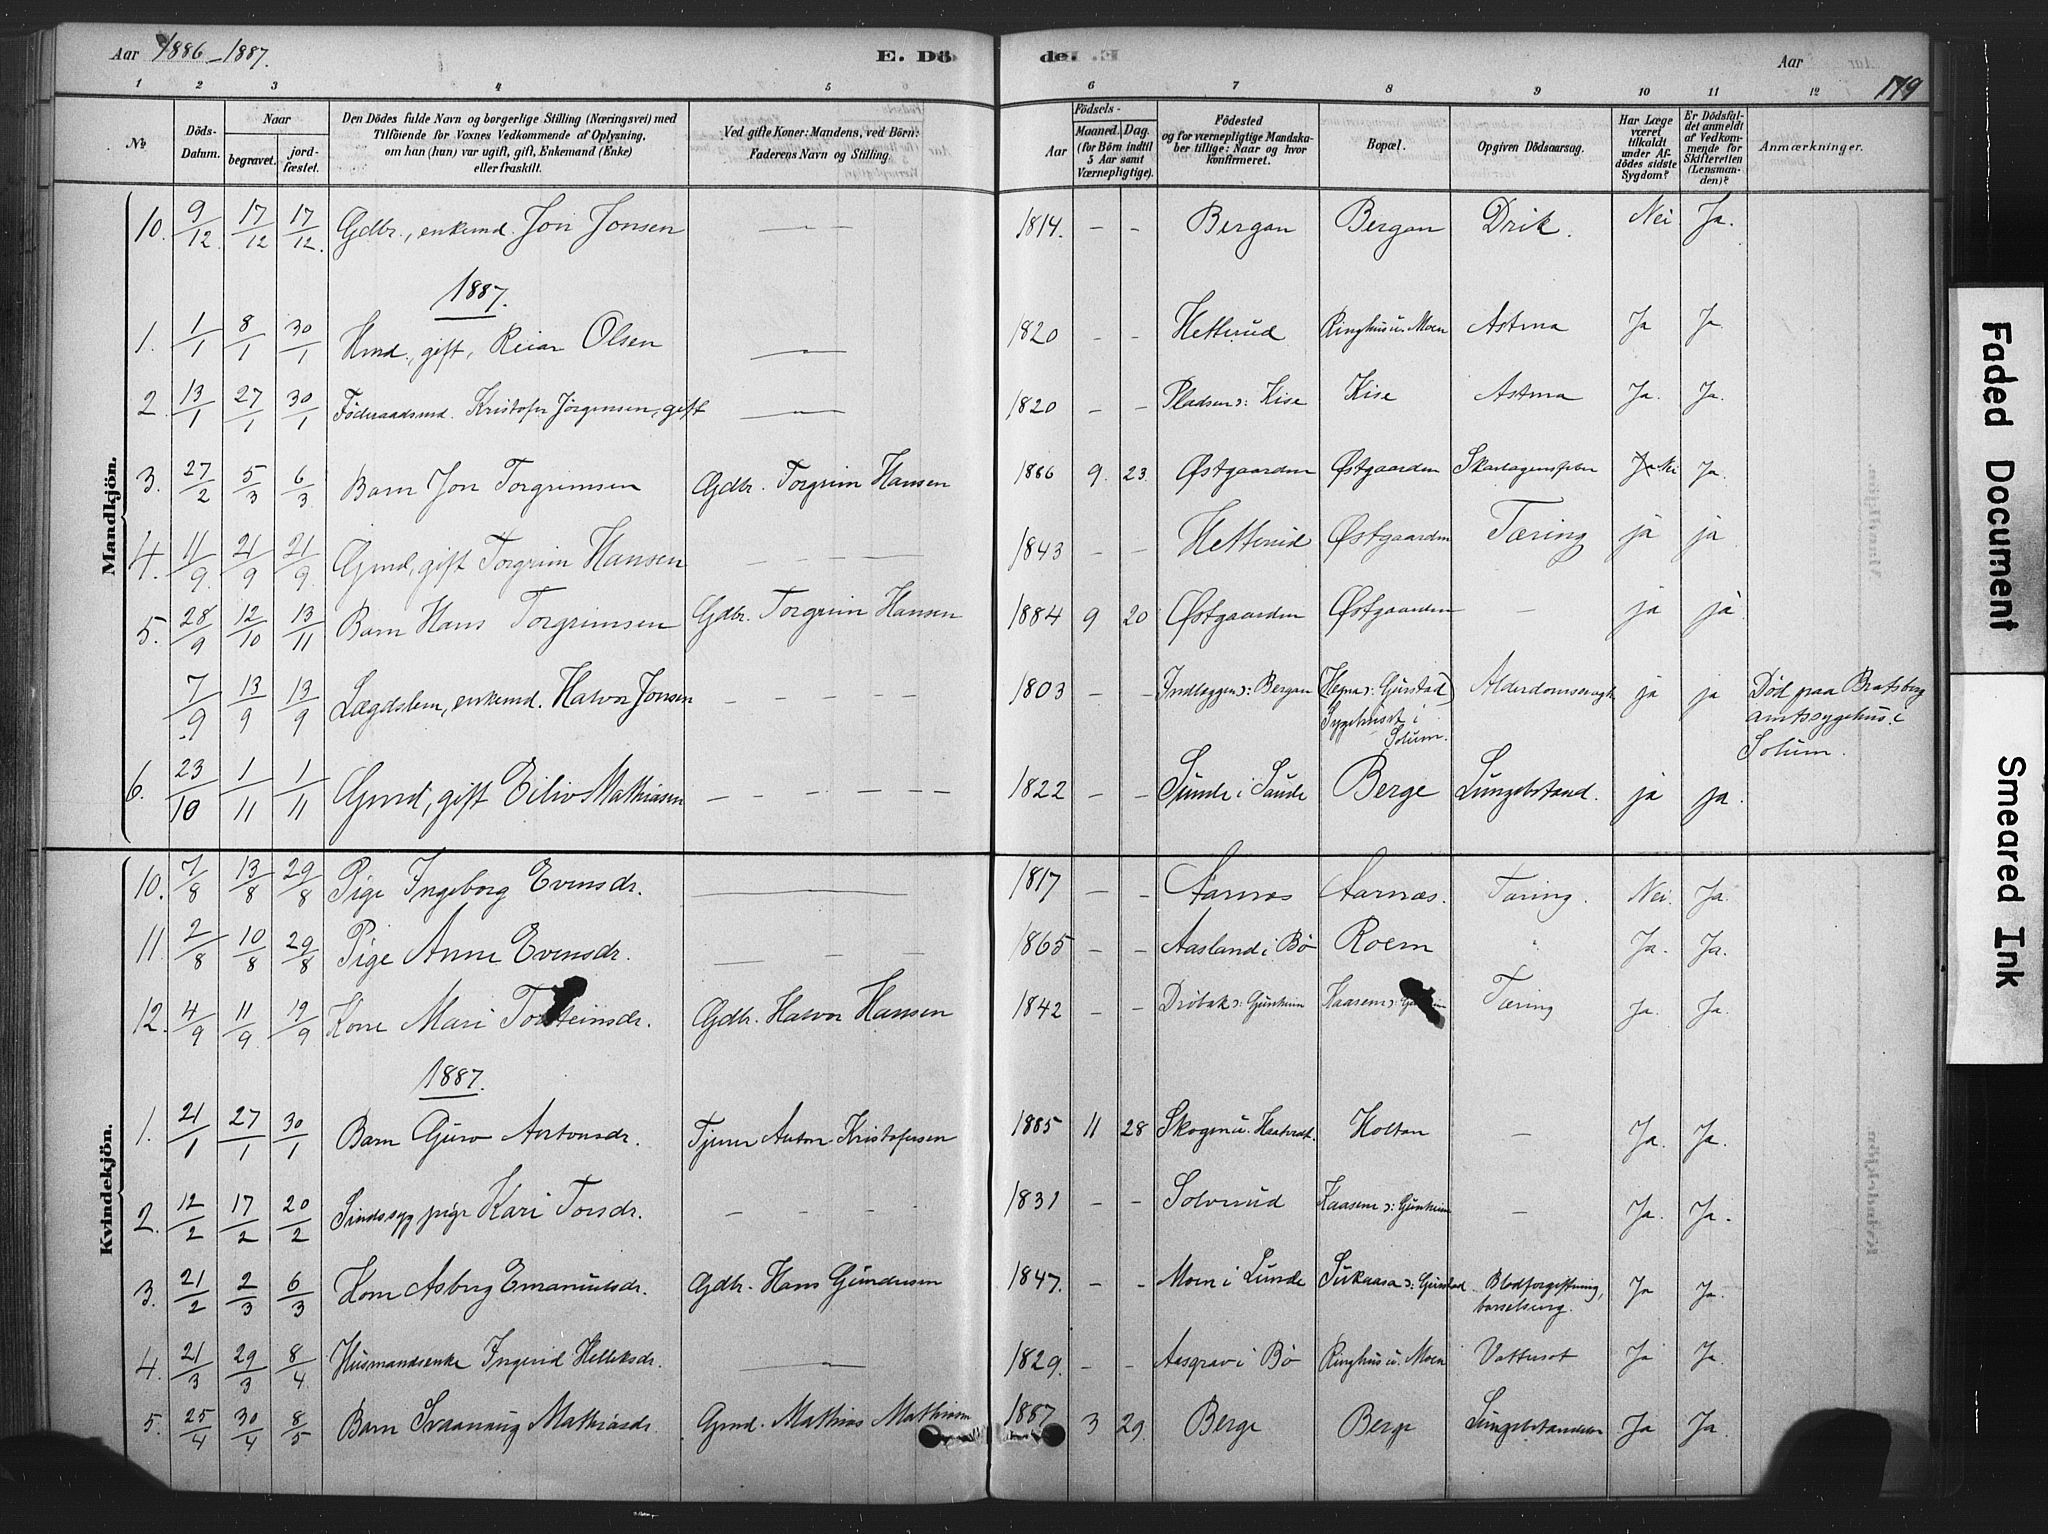 Aar 1886-1887.
E. Dö
de.
Aar
179
1 2 3 4 5 6 7 8 9 10 11 12
№
Döds-Datum.
Naar
begravet.
jord-fæstet.
Den Dödes fulde Navn og borgerlige Stilling (Næringsvei) med
Tilföiende for Voxnes Vedkommende af Oplysning,
om han (hun) var ugift, gift, Enkemand (Enke)
eller fraskilt.
Ved gifte Koner: Mandens, ved Börn:
Faderens Navn og Stilling.
Födsels-
Aar
Maaned. Dag.
(for Börn indtil
5 Aar samt
Værnepligtige).
Födested
og for værnepligtige Mandska-
ber tillige: Naar og hvor
konfirmeret.
Bopæl.
Opgiven Dödsaarsag.
Har Læge
været
tilkaldt
under Af-
dödes sidste
Sygdom?
Er Dödsfal-
det anmeldt
af Vedkom-
mende for
Skifteretten
(Lensman-
den)?
Anmærkninger.
Mandkjön.
10. 9/12 17/12 17/12 Gdbr., enkemd. Jon Jonsen — 1814. - - Bergan Bergan Drik. Nei Ja.
1887.
1. 1/1 8/1 30/1 Hmd., gift, Reiar Olsen — 1820 - - Hetterud Ringhus u. Moen Astma Ja Ja
2. 13/1 27/1 30/1 Föderaadsmd. Kristofer Jörgensen, gift — 1820 - - Pladsen ɔ: Kise Kise Astma Ja. Ja.
3. 27/2 5/3 6/3 Barn Jon Torgrimsen Gdbr. Torgrim Hansen 1886 9. 23. Østgaarden Østgaarden Skarlagensfeber Ja Nei Ja.
4. 11/9 21/9 21/9 Gmd, gift Torgrim Hansen - - - 1843 - - Hetterud Østgaarden Tæring ja ja
5. 28/9 12/10 13/11 Barn Hans Torgrimsen Gdbr. Torgrim Hansen 1884 9 20 Østgaarden Østgaarden - ja ja
7/9 13/9 13/9 Lægdslem, enkemd. Halvor Jonsen - - - - 1803 - - Indlæggen ɔ: Bergan (Hegna ɔ: Gurstad)
Sygehuset i
Solum. Alderdomssvagh. ja ja Död paa Bratsberg
amtssygehus i
Solum.
6. 23/10 1/11 1/11 Gmd, gift Eiliv Mathiasen - - - - - - 1822 - - Sunde i Saude Berge Lungebetænd. ja ja.
Kvindekjön.
10. 7/8 13/8 29/8 Pige Ingeborg Evensdr. — 1817 - - Aarnæs Aarnæs. Tæring. Nei. Ja.
11. 2/8 10/8 29/8 Pige Anne Evensdr. - - - - 1865 - - Aasland i Bö Roem " Ja. Ja.
12. 4/9 11/9 19/9 Kone Mari Torsteinsdr. Gdbr. Halvor Hansen 1842 - - Dröbak ɔ: Gunheim Kaasene ɔ: Gunheim Tæring Ja. Ja.
1887.
1. 21/1 27/1 30/1 Barn Guro Antonsdr. Tjener Anton Kristofersen 1885 11 28 Skogen u. Haatvedt. Holtan - Ja. Ja.
2. 12/2 17/2 20/2 Sindssyg pige Kari Torsdr. - - - - 1831 - - Solverud Kaasene ɔ: Gunheim - Ja. Ja.
3. 21/2 2/3 6/3 Kone Asberg Emanuelsdr. Gdbr. Hans Gundersen 1847. - - Moen i Lunde Sukaasa ɔ: Gurstad Blodforgiftning,
barselseng. Ja Ja.
4. 21/3 29/3 8/4 Husmandsenke Ingerid Helleksdr. — 1829. - - Aasgrav i Bö Ringhus u. Moen Vattersot Ja Ja
5. 25/4 30/4 8/5 Barn Svanaug Mathiasdr. Gmd. Mathias Mathiasen 1887 3 29. Berge Berge Lungebetændelse Ja Ja.
Faded Document
Smeared Ink